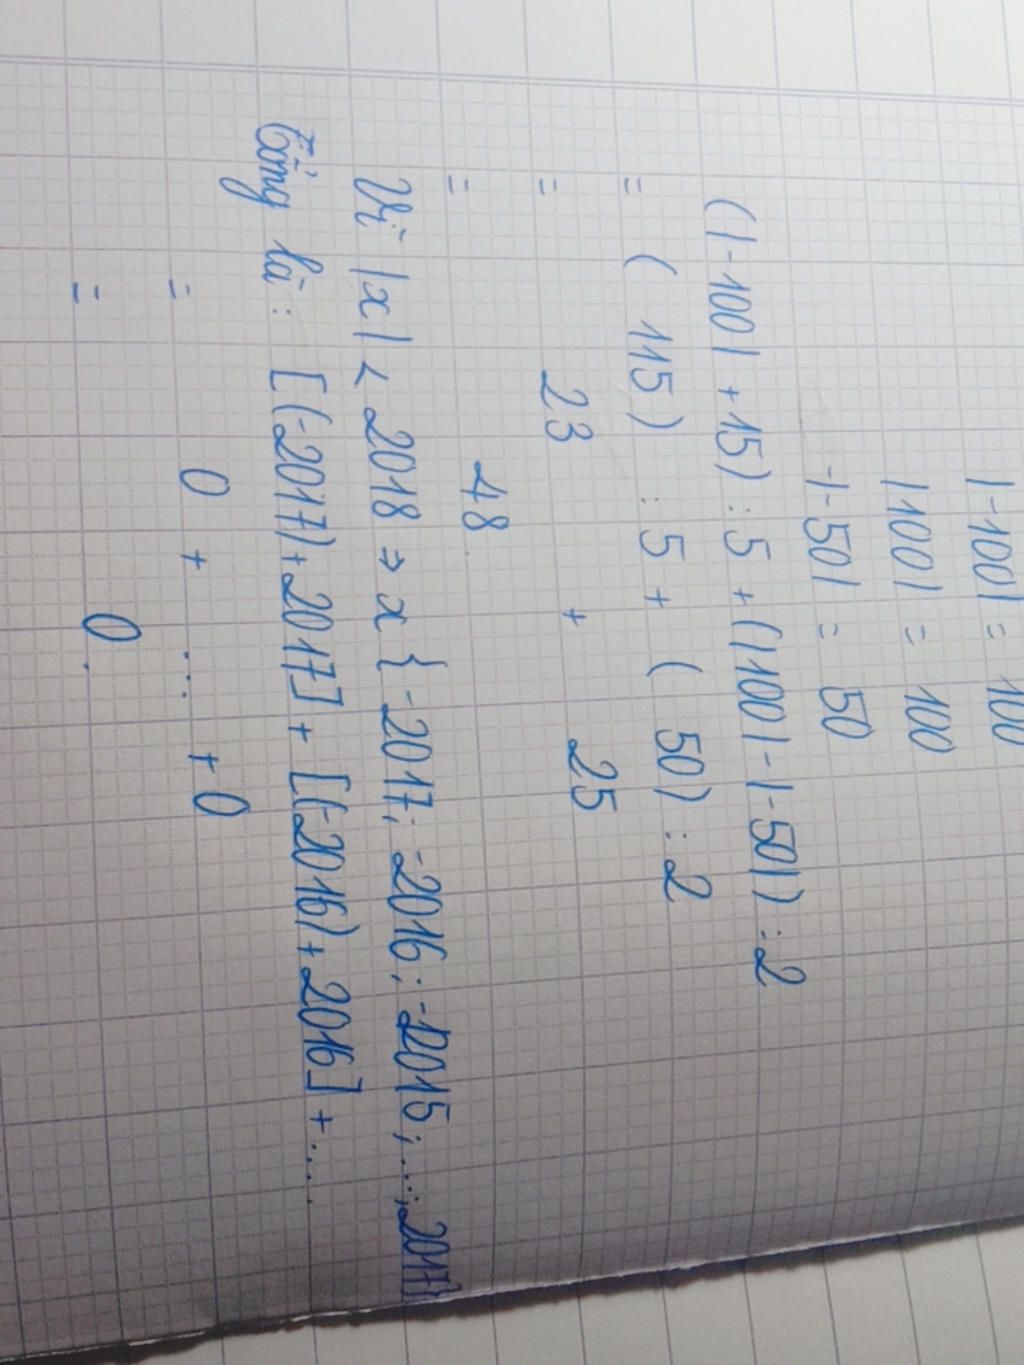 |-100| = 100
|100| = 100
-|-50| = 50
(|-100| + 15) : 5 + (|100| - |-50|) : 2
= ( 115 ) : 5 + ( 50 ) : 2
= 23 + 25
= 48
Vì |x| < 2018 => x { -2017; -2016; -2015; ...; 2017}
Tổng là: [(-2017)+2017] + [(-2016)+2016] + ....
= 0 + ... + 0
= 0.